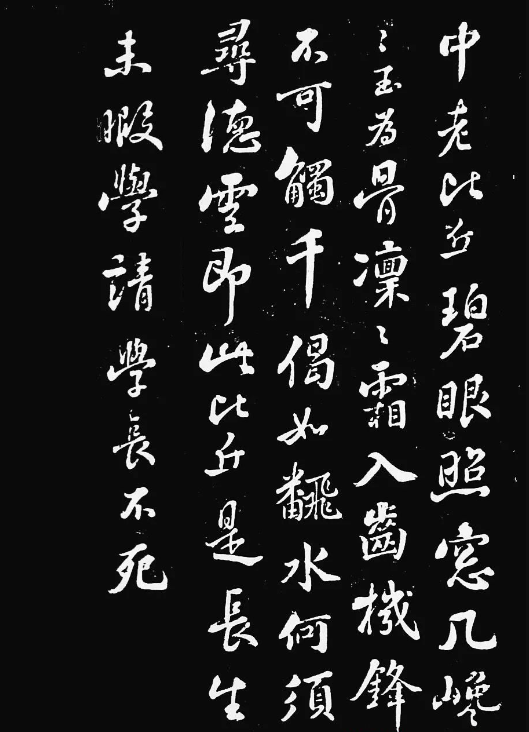 中老比丘碧眼照窗几巉
々玉為骨凜々霜入齒機鋒
不可觸千偈如翻水何須
尋德雲即此比丘是長生
未暇學請學長不死